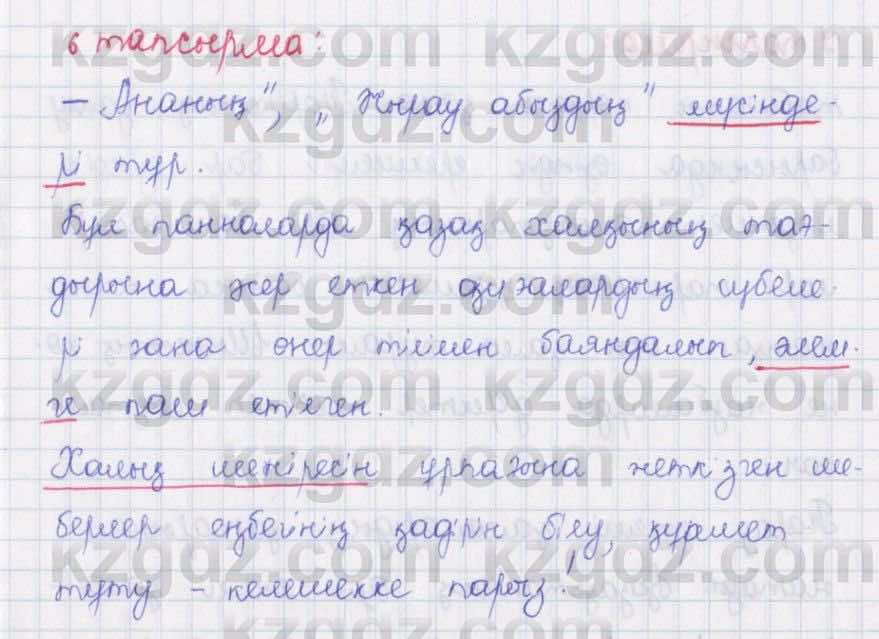 6 тапсырма:
– Ананың", „Жырау абыздың" мүсінде-
рі тұр.
Бұл панноларда қазақ халқының тағ-
дырына әсер еткен оқиғалардың сүбеле
рі ғана өнер тілімен баяндалып, әлем-
ге паш етілген.
Халық шежіресін ұрпағына жеткізген ше-
берлер еңбегінің қадірін білу, құрмет
тұту – келешекке парыз!
kzgdz.com